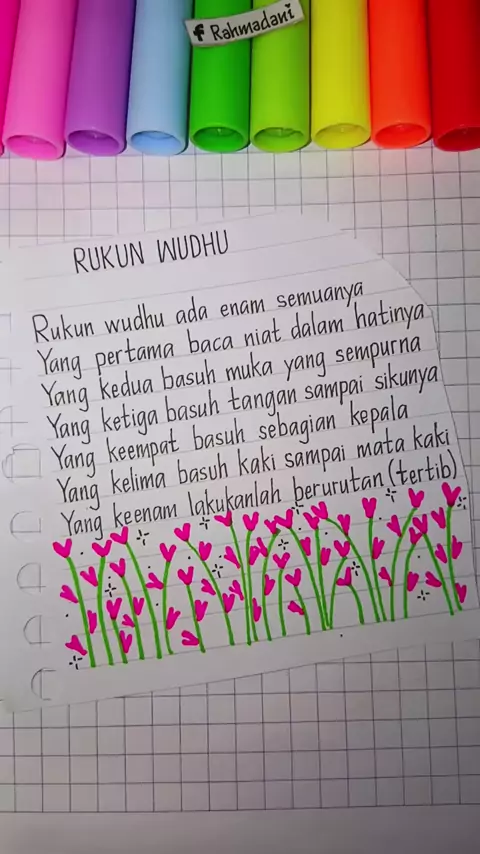 f Rahmadani
RUKUN WUDHU
Rukun wudhu ada enam semuanya
Yang pertama baca niat dalam hatinya
Yang kedua basuh muka yang sempurna
Yang ketiga basuh tangan sampai sikunya
Yang keempat basuh sebagian kepala
Yang kelima basuh kaki sampai mata kaki
Yang keenam lakukanlah berurutan (tertib)